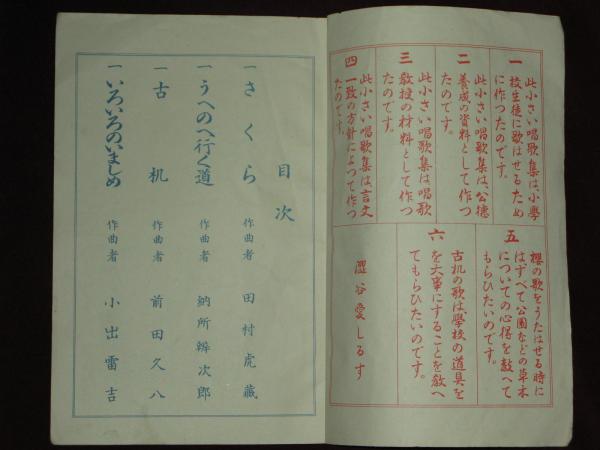 一
此小さい唱歌集は、小學
校生徒に歌はせるため
に作つたのです。
二
此小さい唱歌集は、公德
養成の資料として作つ
たのです。
三
此小さい唱歌集は唱歌
敎授の材料として作つ
たのです。
四
此小さい唱歌集は言文
一致の方針によつて作つ
たのです。
五
櫻の歌をうたはせる時に
はすべて公園などの草木
についての心得を敎へて
もらひたいのです。
六
古机の歌は、學校の道具を
を大事にすることを敎へ
てもらひたいのです。
澀谷愛しるす
目次
一さくら 作曲者 田村虎藏
一うへのへ行く道 作曲者 納所辨次郎
一古机 作曲者 前田久八
一いろいろのいましめ 作曲者 小出雷吉